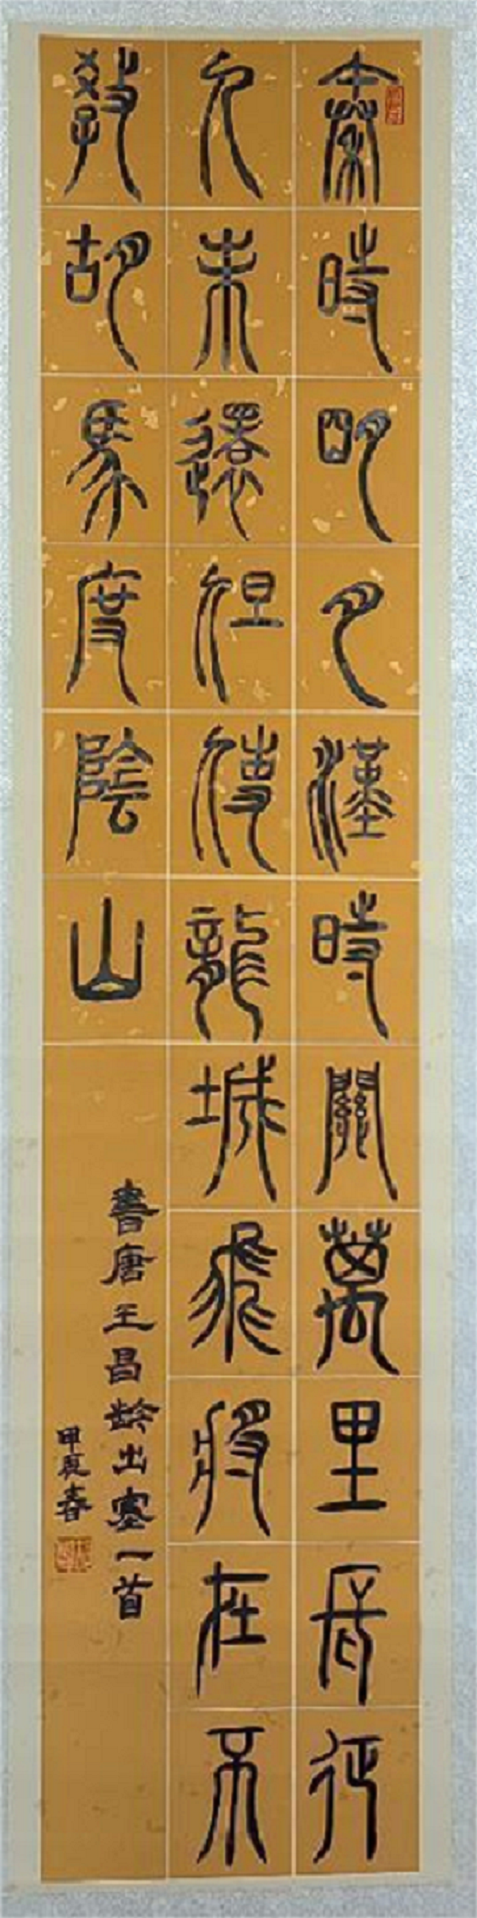 秦時明月漢時關萬里長征
人未還但使龍城飛將在不
教胡馬度陰山
書唐王昌齡出塞一首
甲辰春